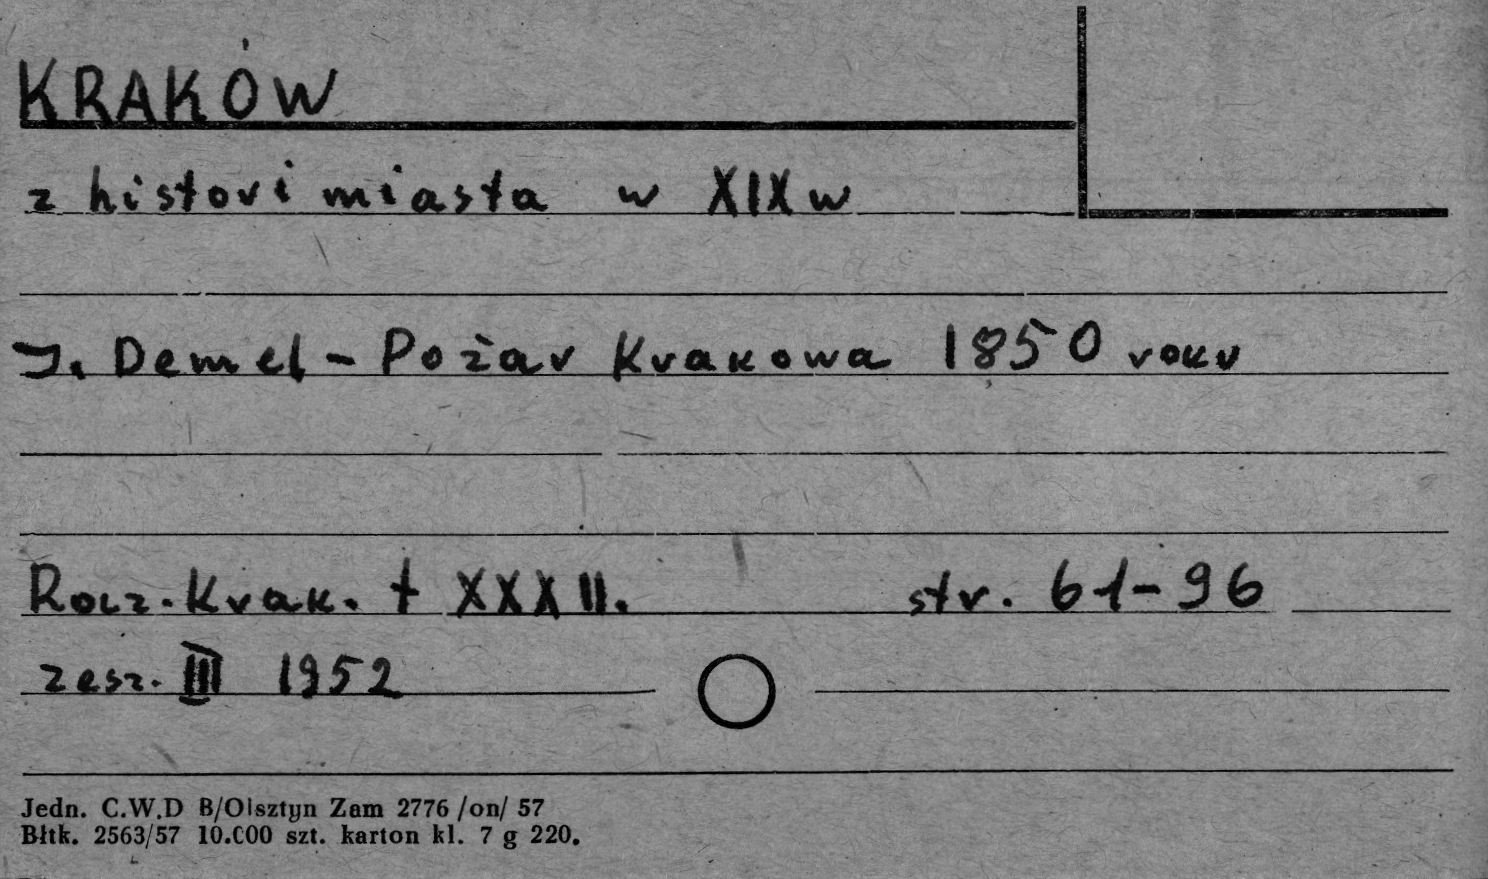 KRAKÓW
z histori miasta w XIX w
J. Demel - Pożar Krakowa 1850 roku
Rocz. Krak. t XXXII. str. 61-96
zesz. III 1952
Jedn. C.W.D B/Olsztyn Zam 2776 /on/ 57
Błtk. 2563/57 10.000 szt. karton kl. 7 g 220.